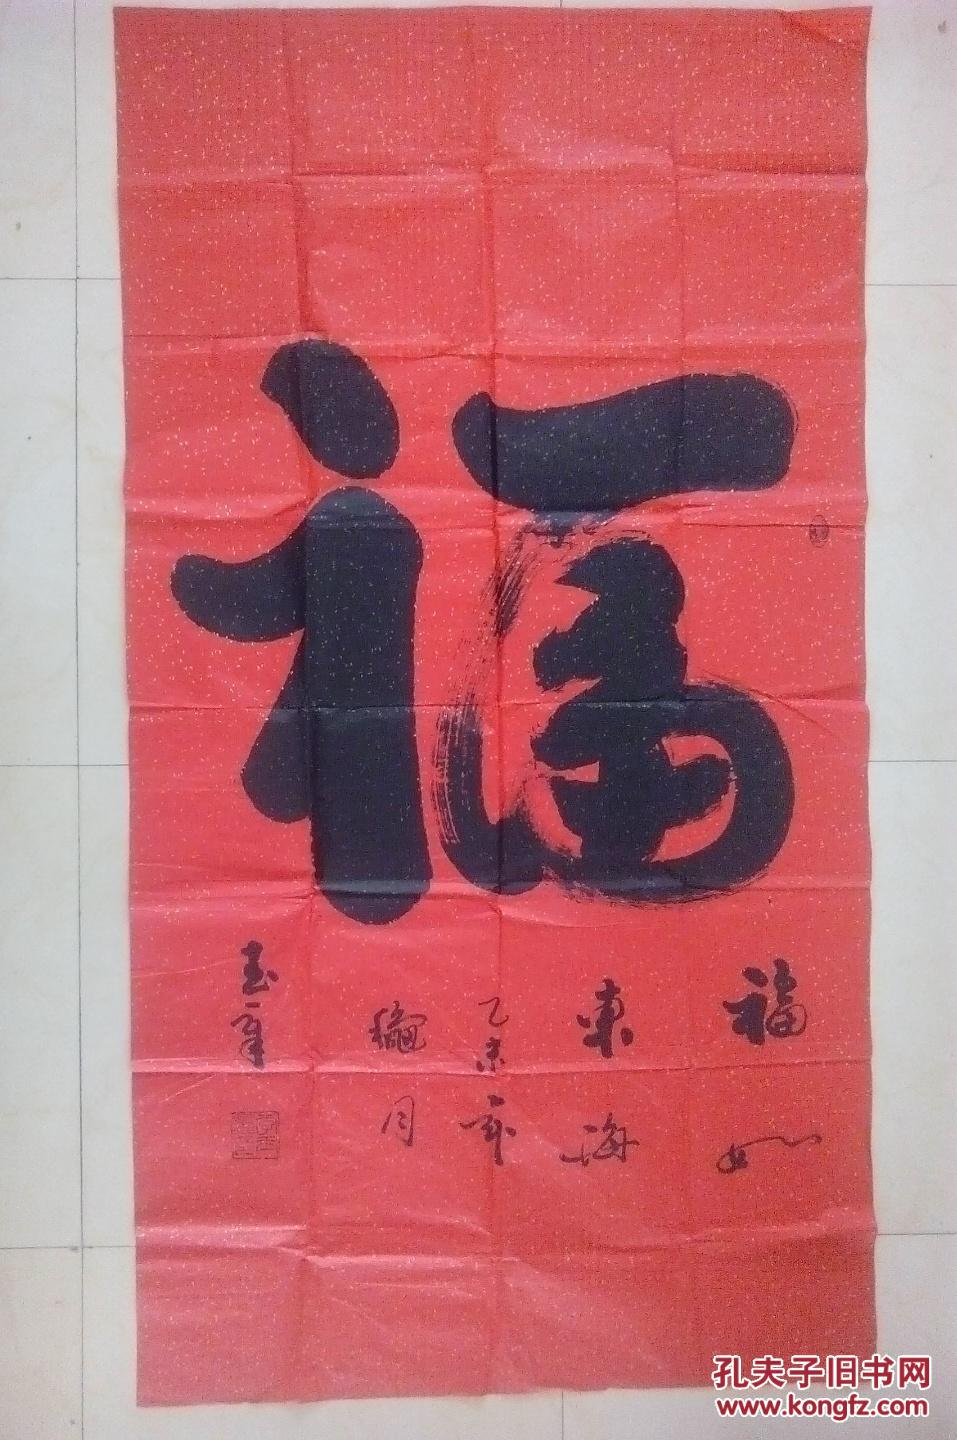 福
福如
東海
乙未年
龝月
孔夫子旧书网
www.kongfz.com